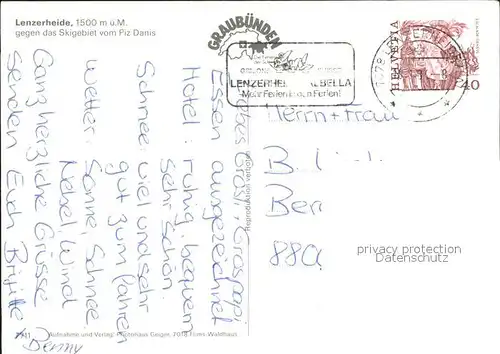 Lenzerheide, 1500 m ü.M.
gegen das Skigebiet vom Piz Danis
GRAUBÜNDEN
LENZERHEIDE VALBELLA
Mehr Ferien in den Ferien!
HELVETIA
40
Herrn + Frau
B
Ber
880
Liebes Grosi, Grospapi
Essen ausgezeichnet
Hotel: ruhig, bequem
sehr schön
Schnee: viel und sehr
gut zum fahren
Wetter: Sonne, Schnee
Nebel, Wind
Ganz herzliche Grüsse
senden Euch Brigitte
Reproduktion verboten
7911 Aufnahme und Verlag: Photohaus Geiger, 7018 Flims-Waldhaus
privacy protection
Datenschutz